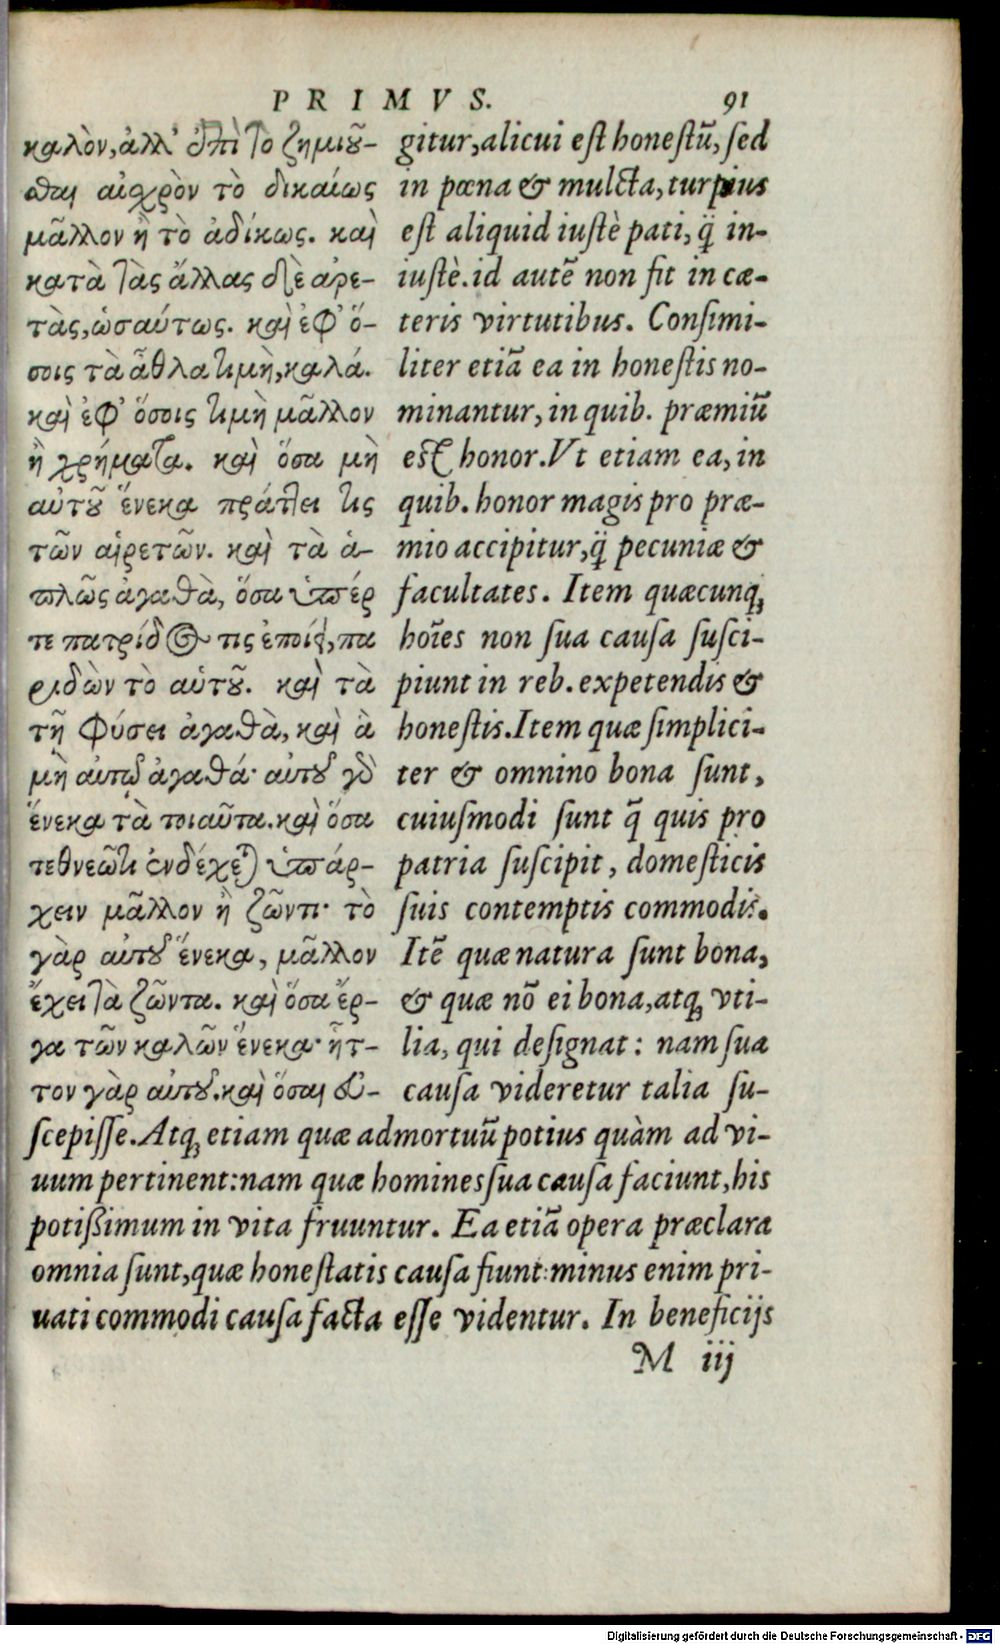 PRIMVS. 91
καλὸν, ἀλλ' ἐπὶ τὸ ζημιοῦ-
σθαι αἰσχρὸν τὸ δικαίως
μᾶλλον ἢ τὸ ἀδίκως. καὶ
κατὰ τὰς ἄλλας δὲ ἀρε-
τὰς, ὡσαύτως. καὶ ἐφ' ὅ-
σοις τὰ ἆθλα τιμὴ, καλά.
καὶ ἐφ' ὅσοις τιμὴ μᾶλλον
ἢ χρήματα. καὶ ὅσα μὴ
αὑτοῦ ἕνεκα πράττει τις
τῶν αἱρετῶν. καὶ τὰ ἁ-
πλῶς ἀγαθὰ, ὅσα ὑπέρ
τε πατρίδος τις ἐποίησε, πα
ριδὼν τὸ αὑτοῦ. καὶ τὰ
τῇ φύσει ἀγαθὰ, καὶ ἃ
μὴ αὐτῷ ἀγαθά· αὑτοῦ γὰρ
ἕνεκα τὰ τοιαῦτα. καὶ ὅσα
τεθνεῶτι ἐνδέχεται ὑπάρ-
χειν μᾶλλον ἢ ζῶντι· τὸ
γὰρ αὑτοῦ ἕνεκα, μᾶλλον
ἔχει τὰ ζῶντα. καὶ ὅσα ἔρ-
γα τῶν καλῶν ἕνεκα· ἧτ-
τον γὰρ αὑτοῦ. καὶ ὅσαι εὐ-
gitur, alicui est honestū, sed
in pœna & mulcta, turpius
est aliquid iustè pati, q̃ in-
iustè. id autẽ non fit in cæ-
teris virtutibus. Consimi-
liter etiã ea in honestis no-
minantur, in quib. præmiũ
est honor. Vt etiam ea, in
quib. honor magis pro præ-
mio accipitur, q̃ pecuniæ &
facultates. Item quæcunq;
hoĩes non sua causa susci-
piunt in reb. expetendis &
honestis. Item quæ simplici-
ter & omnino bona sunt,
cuiusmodi sunt q̃ quis pro
patria suscipit, domesticis
suis contemptis commodis.
Itẽ quæ natura sunt bona,
& quæ nõ ei bona, atq; vti-
lia, qui designat: nam sua
causa videretur talia su-
scepisse. Atq; etiam quæ ad mortuũ potius quàm ad vi-
uum pertinent: nam quæ homines sua causa faciunt, his
potißimum in vita fruuntur. Ea etiã opera præclara
omnia sunt, quæ honestatis causa fiunt: minus enim pri-
uati commodi causa facta esse videntur. In beneficijs
M iij
Digitalisierung gefördert durch die Deutsche Forschungsgemeinschaft - DFG